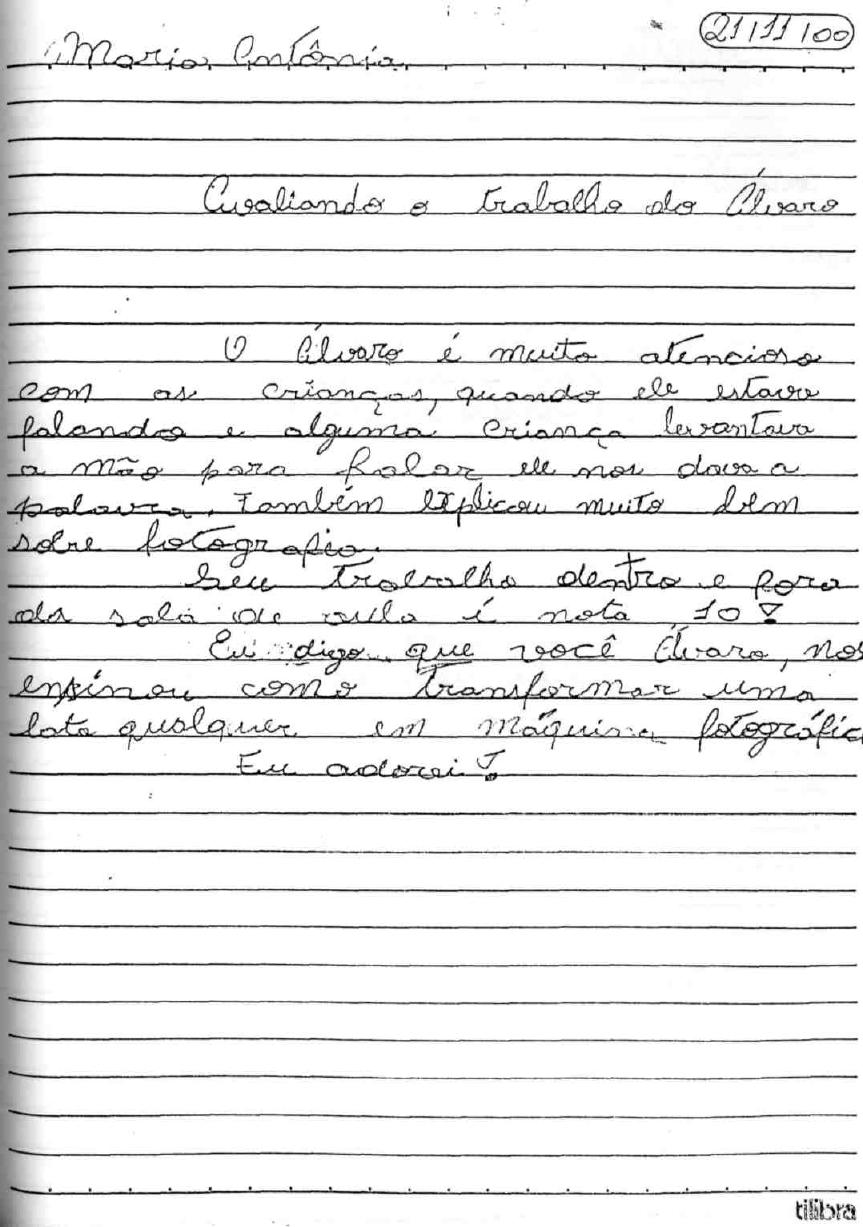 21/11/00
Maria Antônia
Avaliando o trabalho do Álvaro
O Álvaro é muito atencioso
com as crianças, quando ele estava
falando e alguma criança levantava
a mão para falar ele nos dava a
palavra. Também explicou muito bem
sobre fotografia.
Seu trabalho dentro e fora
da sala de aula é nota 10!
Eu digo que você Álvaro, nos
ensinou como transformar uma
lata qualquer em máquina fotográfic
Eu adorei!
tilibra